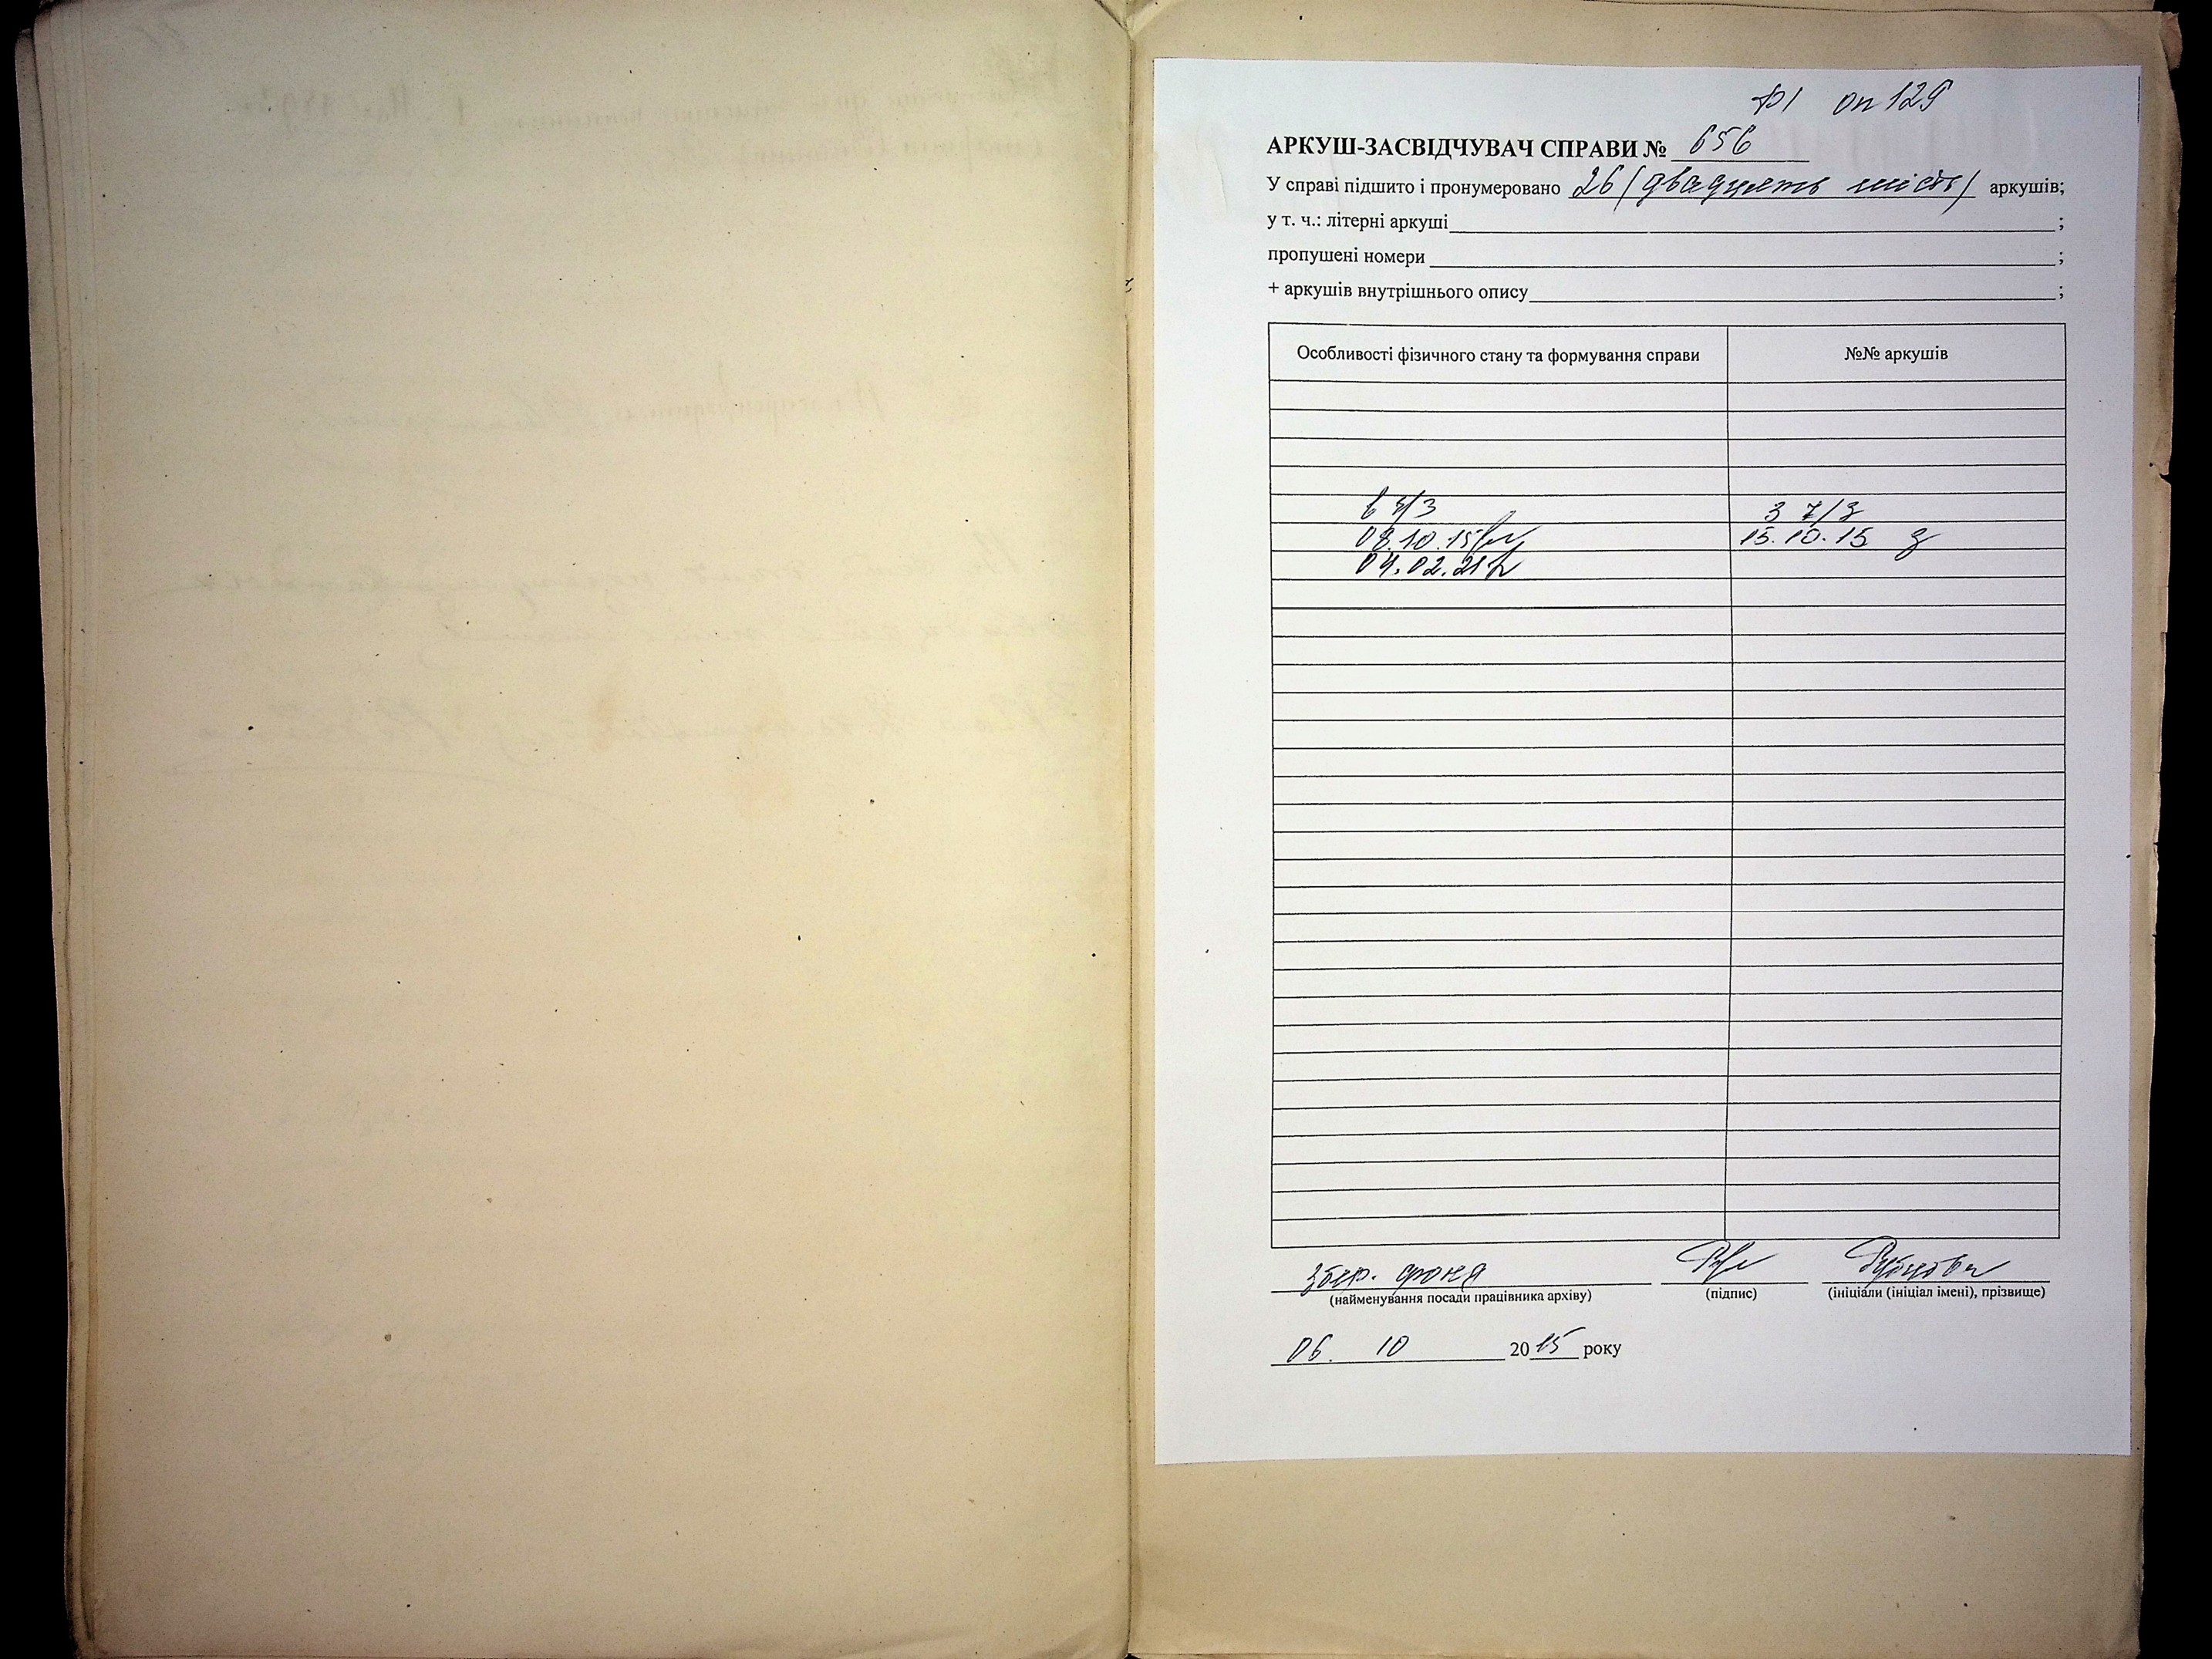 Ф1 оп 129
АРКУШ-ЗАСВІДЧУВАЧ СПРАВИ № 656
У справі підшито і пронумеровано 26 (двадцять шість) аркушів;
у т. ч.: літерні аркуші ;
пропущені номери ;
+ аркушів внутрішнього опису ;
Особливості фізичного стану та формування справи №№ аркушів
в ч/з з ч/з
08.10.15 15.10.15
04.02.21
збер. фонд
(найменування посади працівника архіву) (підпис) (ініціали (ініціал імені), прізвище)
06. 10 2015 року